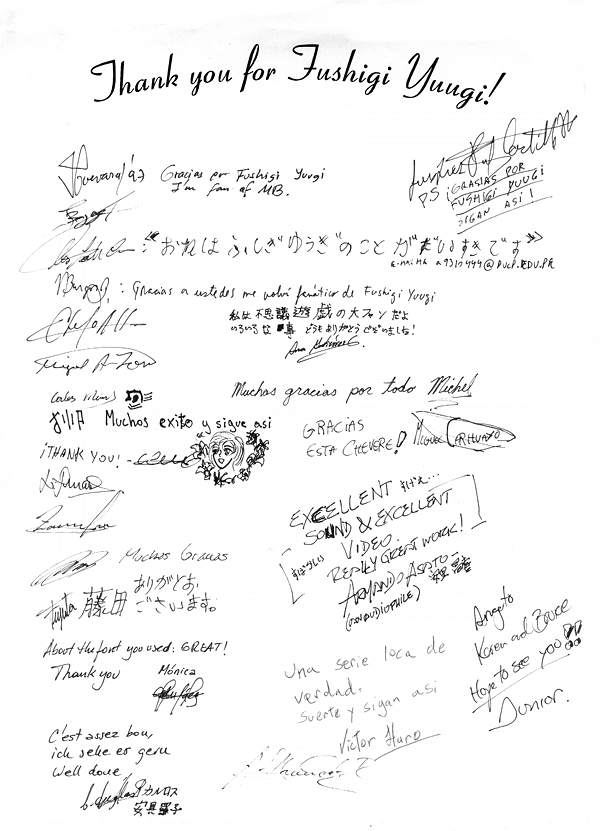 Thank you for Fushigi Yuugi!
Guevara '97 Gracias por Fushigi Yuugi
I'm fan of MB.
PS ¡GRACIAS POR
FUSHIGI YUUGI
SIGAN ASI!
"おれはふしぎゆうぎ"のことがだいすきです"
E-MAIL a9310444@PUCP.EDU.PE
: Gracias a ustedes me volví fanático de Fushigi Yuugi
私は不思議遊戯の大ファンだよ
いろいろな事 どうもありがとうございました!
Miguel A.
Muchas gracias por todo Michel
Muchos exito y sigue asi
GRACIAS
ESTA CHEVERE! MIGUEL ARHUAYO
¡THANK YOU! -
EXCELLENT すげえ...
SOUND & EXCELLENT
VIDEO.
REALLY GREAT WORK!
ARMANDO ASATO -
(AN AUDIOPHILE)
Muchas Gracias
Fujita 藤田 ありがとお,
ございます.
About the font you used: GREAT!
Thank you Mónica
Una serie loca de
verdad.
suerte y sigan asi
Victor Haro
Angeto
Karen and Bruce
Hope to see you!!
Junior.
C'est assez bon,
ich sehe es gern
Well done
カルロス